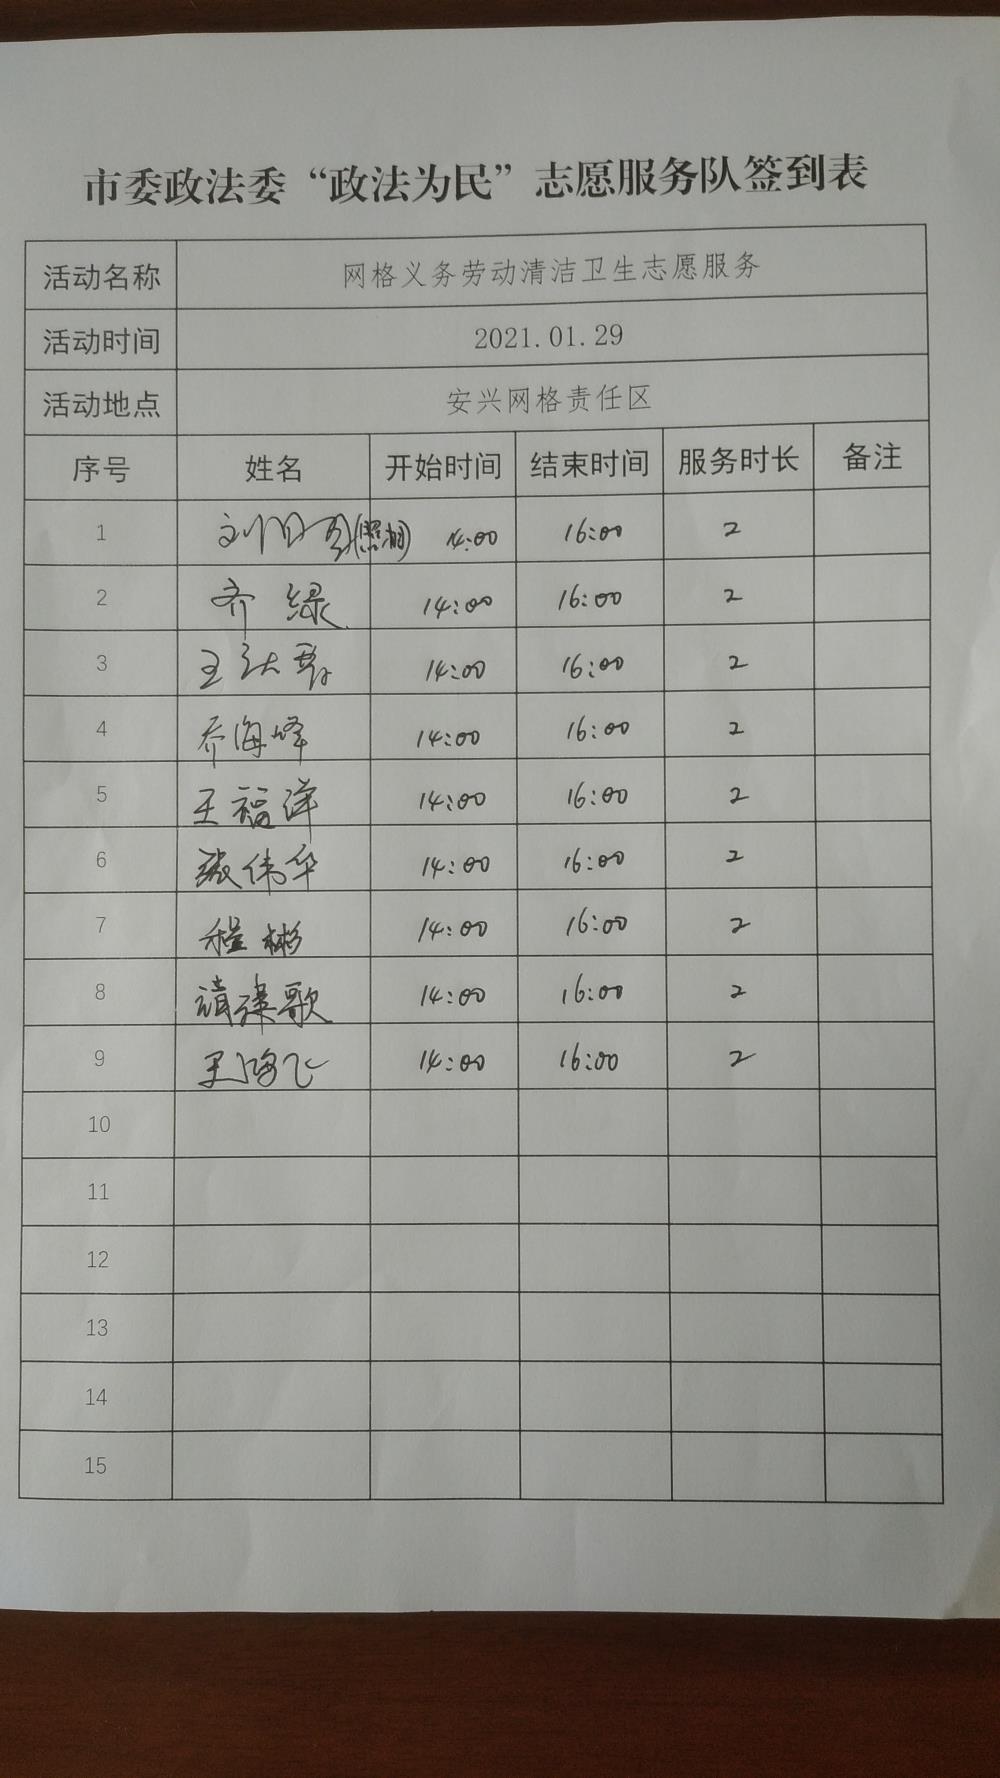 市委政法委“政法为民”志愿服务队签到表
活动名称 网格义务劳动清洁卫生志愿服务
活动时间 2021.01.29
活动地点 安兴网格责任区
序号 姓名 开始时间 结束时间 服务时长 备注
1 刘日(照相) 14:00 16:00 2
2 齐绿 14:00 16:00 2
3 王 14:00 16:00 2
4 乔海峰 14:00 16:00 2
5 王福洋 14:00 16:00 2
6 张伟华 14:00 16:00 2
7 程彬 14:00 16:00 2
8 歌 14:00 16:00 2
9 王鸿飞 14:00 16:00 2
10
11
12
13
14
15